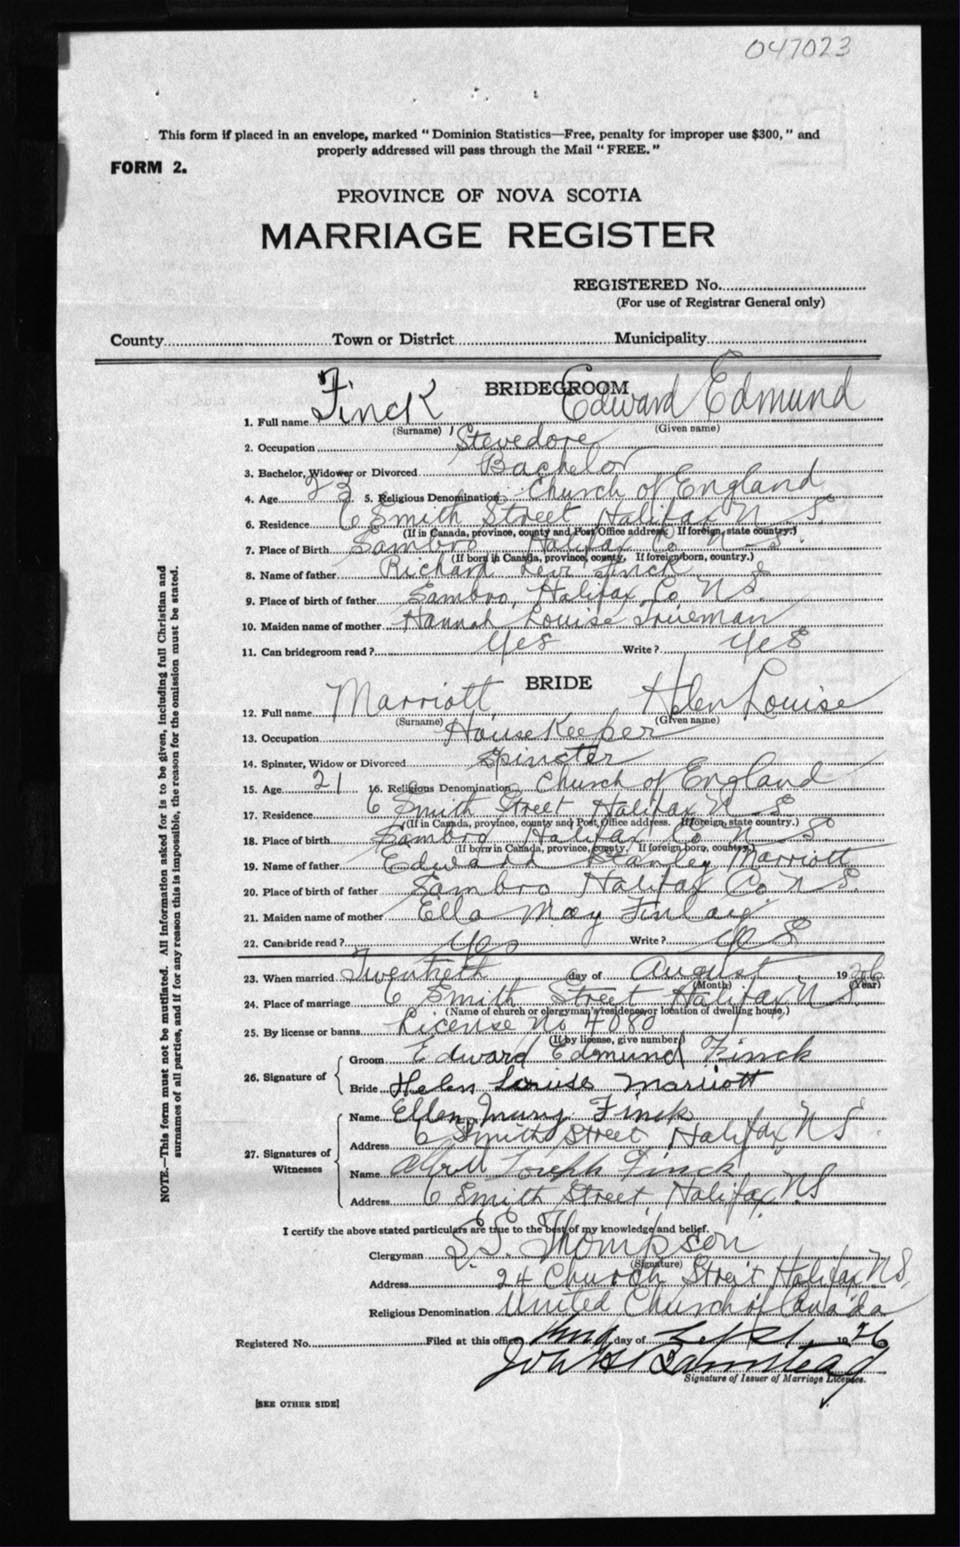 047023
This form if placed in an envelope, marked " Dominion Statistics—Free, penalty for improper use $300, " and
properly addressed will pass through the Mail " FREE. "
FORM 2.
PROVINCE OF NOVA SCOTIA
MARRIAGE REGISTER
REGISTERED No.
(For use of Registrar General only)
County Town or District Municipality
BRIDEGROOM
1. Full name Finck Edward Edmund
(Surname) (Given name)
2. Occupation Stevedore
3. Bachelor, Widower or Divorced Bachelor
4. Age 23 5. Religious Denomination Church of England
6. Residence 6 Smith Street Halifax N S.
(If in Canada, province, county and Post Office address. If foreign, state country.)
7. Place of Birth Sambro Halifax Co N S.
(If born in Canada, province, county. If foreign born, country.)
8. Name of father Richard Levi Finck
9. Place of birth of father Sambro, Halifax Co N S.
10. Maiden name of mother Hannah Louise Trueman
11. Can bridegroom read? Yes Write? Yes
BRIDE
12. Full name Marriott Helen Louise
(Surname) (Given name)
13. Occupation HouseKeeper
14. Spinster, Widow or Divorced Spinster
15. Age 21 16. Religious Denomination Church of England
17. Residence 6 Smith Street Halifax N S
(If in Canada, province, county and Post Office address. If foreign, state country.)
18. Place of birth Sambro Halifax Co N S
(If born in Canada, province, county. If foreign born, country.)
19. Name of father Edward Stanley Marriott
20. Place of birth of father Sambro Halifax Co. N S.
21. Maiden name of mother Ella May Finlay
22. Can bride read? Yes Write? Yes
23. When married Twentieth day of August 1926
(Month) (Year)
24. Place of marriage 6 Smith Street Halifax N S.
(Name of church or clergyman's residence or location of dwelling house,)
25. By license or banns License No 4080
(If by license, give number)
26. Signature of
Groom Edward Edmund Finck
Bride Helen Louise Marriott
27. Signatures of Witnesses
Name Ellen Mary Finck
Address 6 Smith Street Halifax N S.
Name Joseph Finck
Address 6 Smith Street, Halifax, N S
I certify the above stated particulars are true to the best of my knowledge and belief.
Clergyman Thompson
(Signature)
Address 24 Church Street Halifax N S,
Religious Denomination United Church of Canada
Registered No. Filed at this office day of Sept 1926
Barnstead
Signature of Issuer of Marriage Licenses.
[SEE OTHER SIDE]
NOTE.—This form must not be mutilated. All information asked for is to be given, including full Christian and
surnames of all parties, and if for any reason this is impossible, the reason for the omission must be stated.